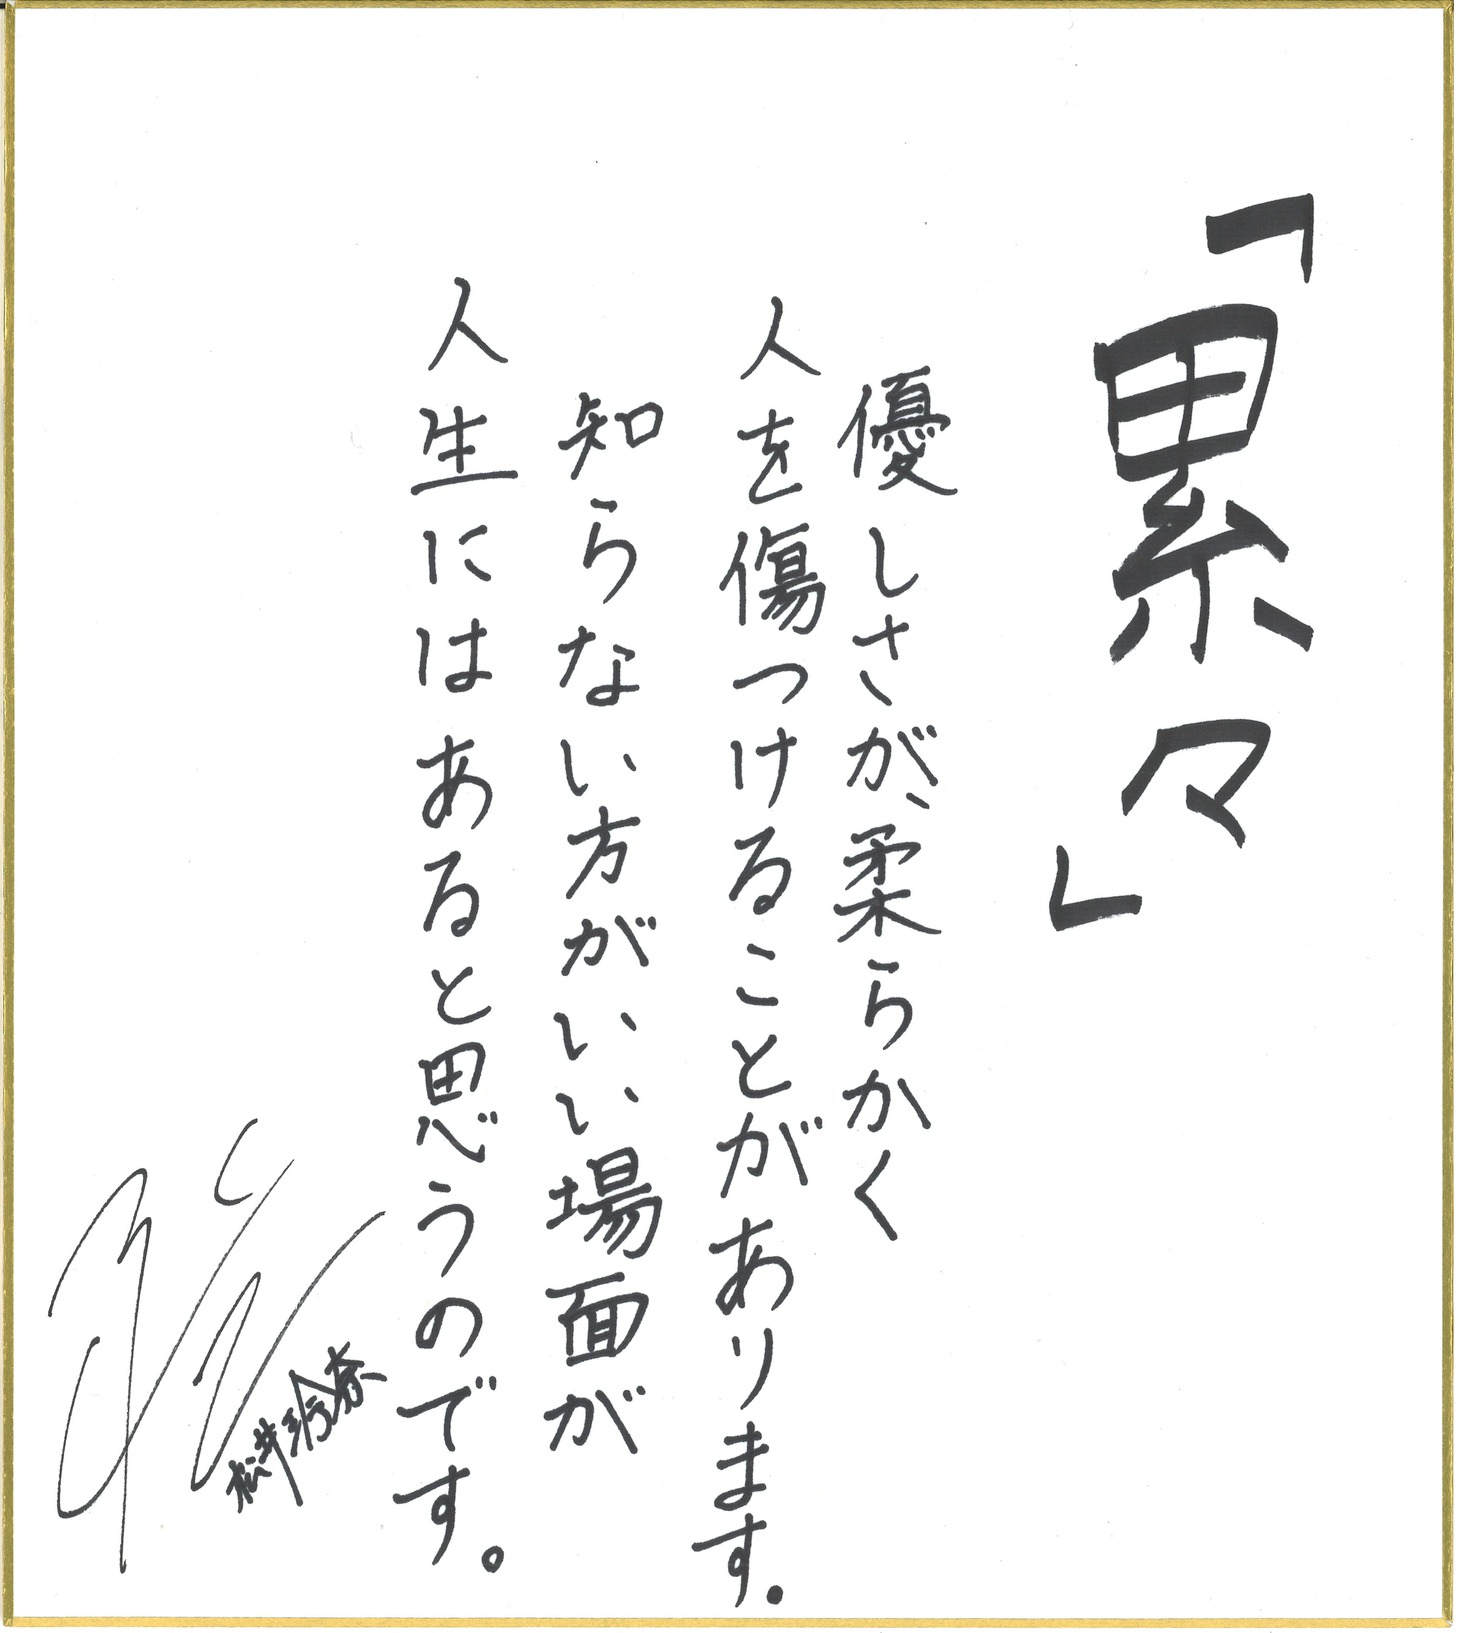 「累々」
優しさが、柔らかく
人を傷つけることがあります。
知らない方がいい場面が
人生にはあると思うのです。
松井玲奈